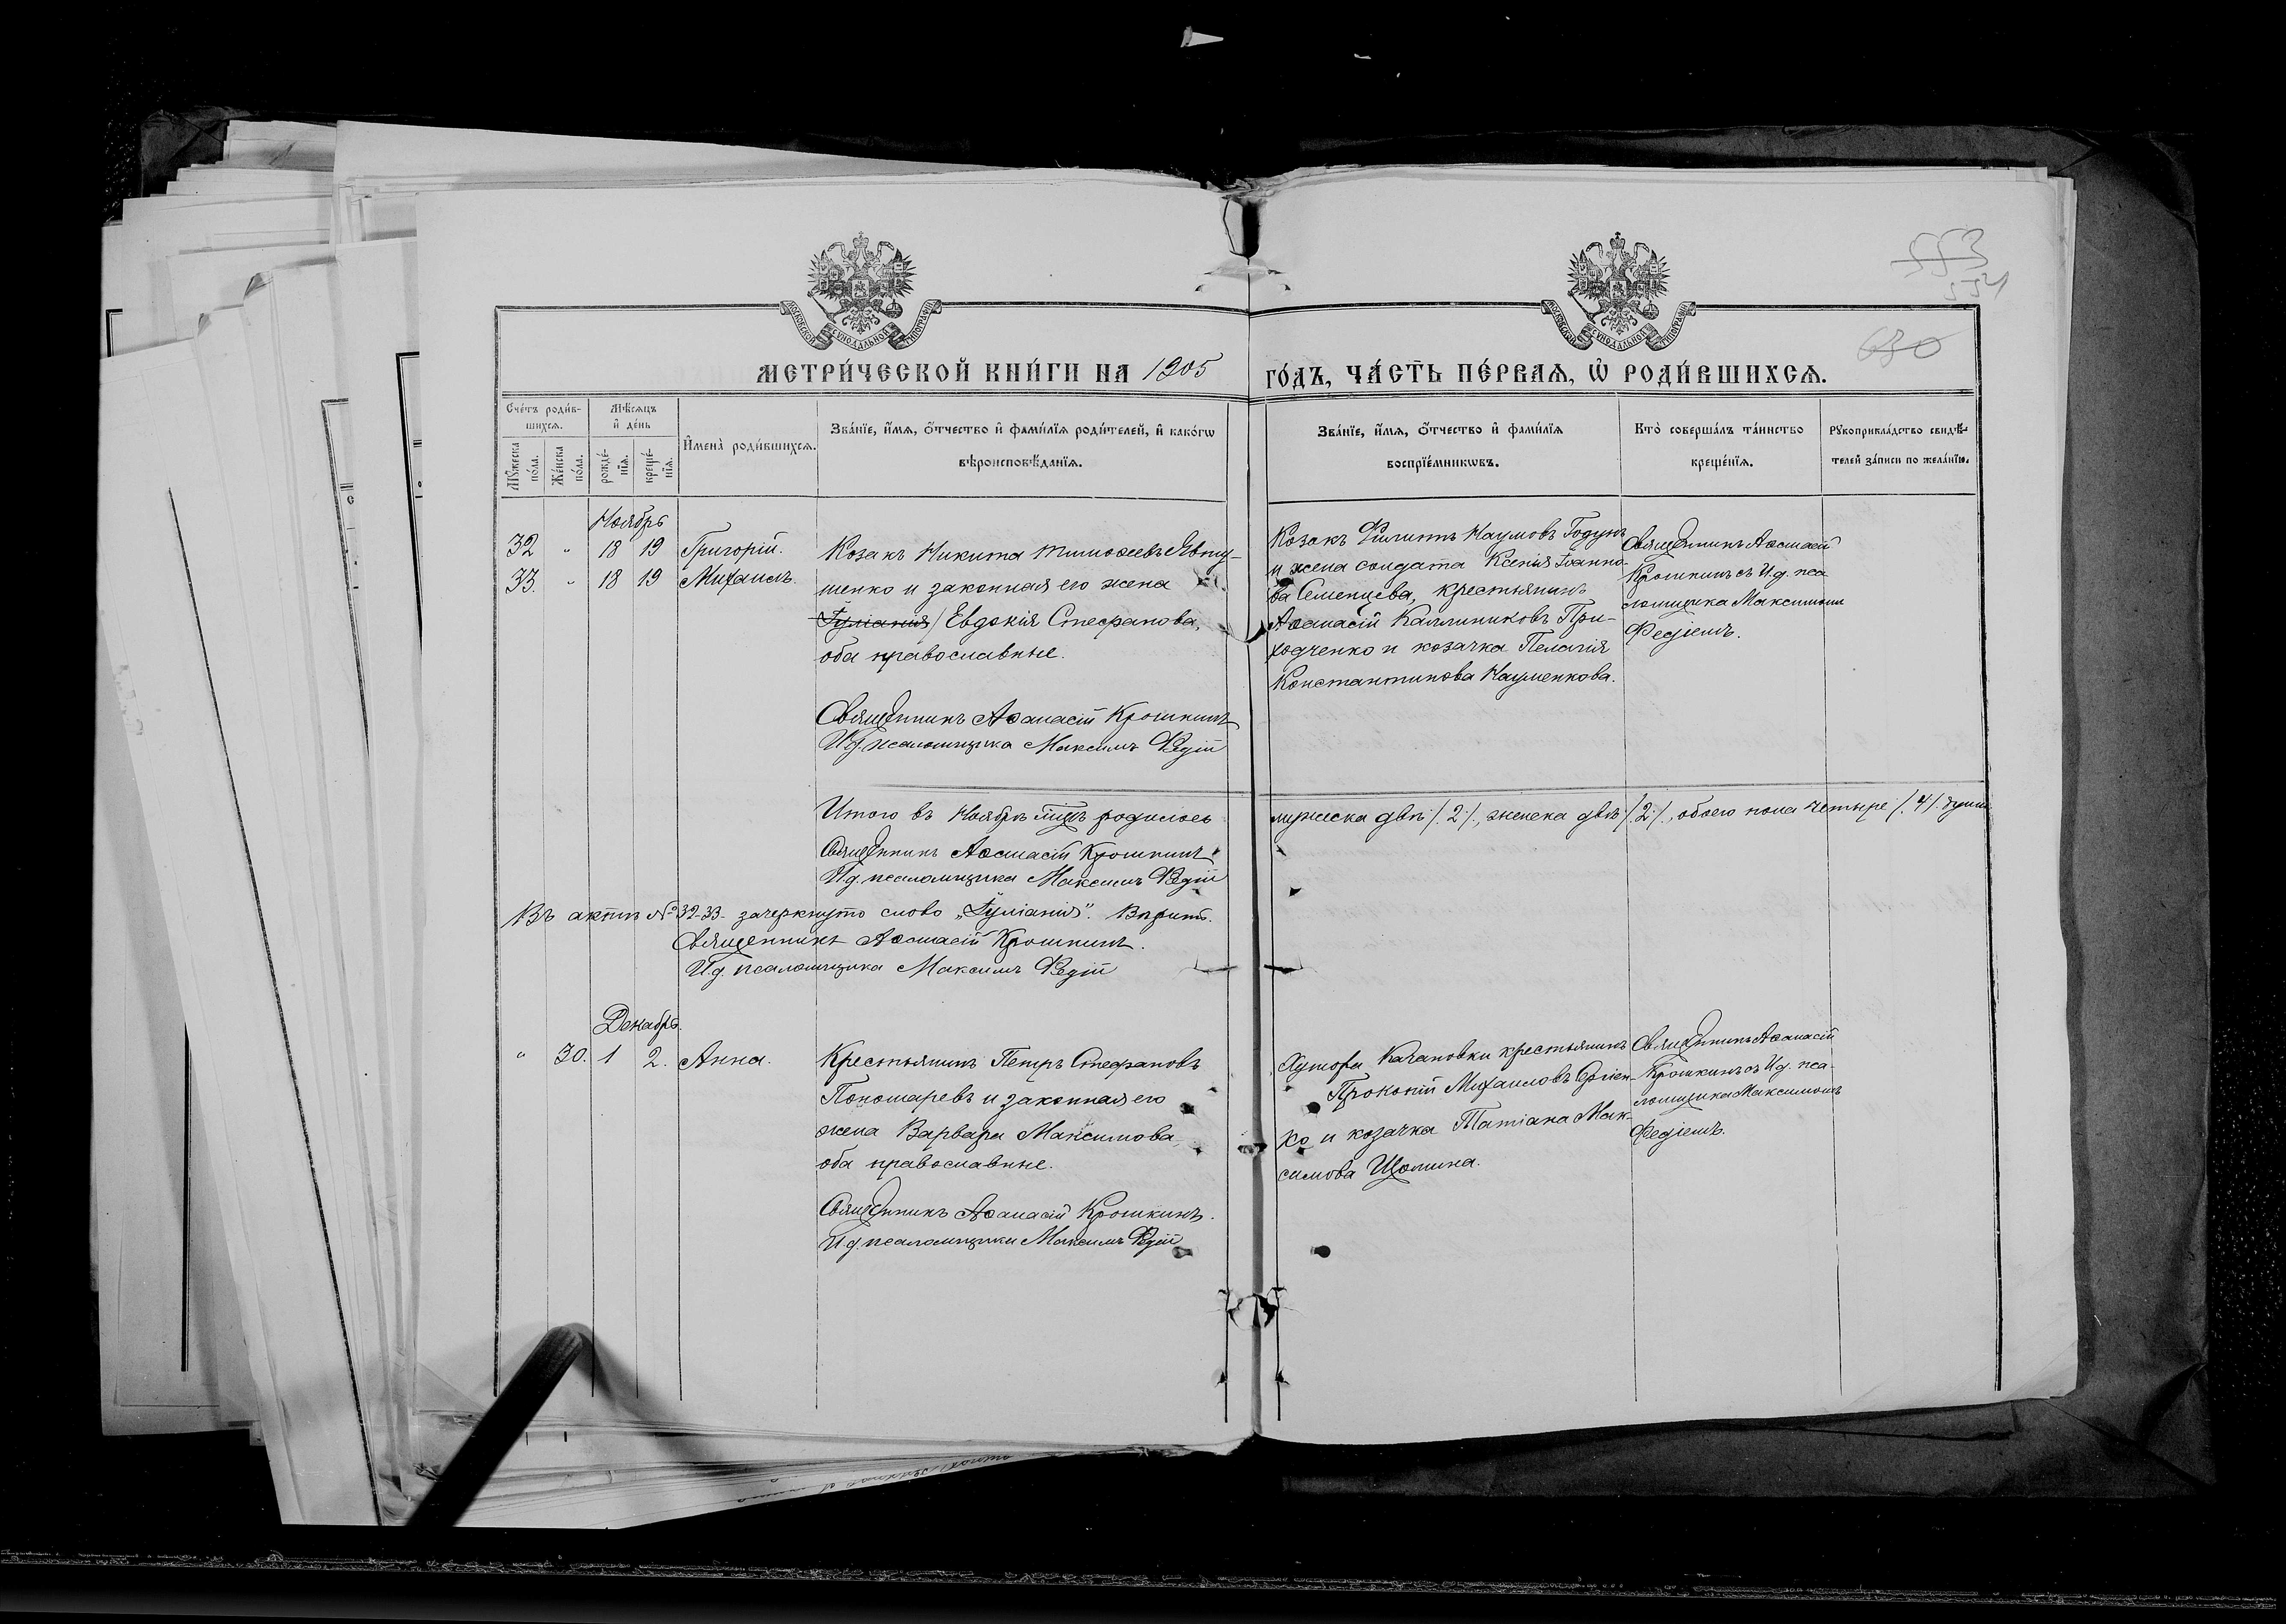 553
554
630
МОСКОВСКОЙ СУНОДАЛЬНОЙ ТИПОГРАФІИ
МОСКОВСКОЙ СУНОДАЛЬНОЙ ТИПОГРАФІИ
МЕТРИ́ЧЕСКОЙ КНИ́ГИ НА 1905
ГО́ДЪ, ЧА́СТЬ ПЕ́РВАЯ, Ѡ РОДИ́ВШИХСЯ.
Сче́тъ роди́в-
шихся.
Мѣ́сяцъ
и де́нь
Мꙋ́жеска по́ла.
Же́нска по́ла.
рожде́-
нїѧ.
креще́-
нїѧ.
И҆мена̀ роди́вшихся.
Зва́нїе, и҆́мѧ, ѻ҆́тчество и҆ фами́лїѧ роди́телей, и҆ како́гѡ
вѣроисповѣ́данїѧ.
Зва́нїе, и҆́мѧ, ѻ҆́тчество и҆ фами́лїѧ
воспрїе́мникѡвъ.
Кто̀ соверша́лъ та́инство
креще́нїѧ.
Рꙋкоприкла́дство свидѣ́-
телей за́писи по жела́нїю.
Ноябрь
32 " 18 19 Григорій.
33. " 18 19 Михаилъ.
Козакъ Никита Тимоѳеевъ Явту-
шенко и законная его жена
Іуліанія / Евдокія Стефанова,
оба православные.
Священникъ Аѳанасій Крошкинъ
И.д. псаломщика Максимъ Федій
Козакъ Филиппъ Наумовъ Годунъ
и жена солдата Ксенія Іоанно-
ва Семенцева, крестьянинъ
Аѳанасій Каллиниковъ При-
ходченко и козачка Пелагія
Константинова Науменкова.
Священникъ Аѳанасій
Крошкинъ съ И.д. пса-
ломщика Максимомъ
Федіемъ.
Итого въ Ноябрѣ мцѣ родилось
мужеска двѣ /. 2 ./, женска двѣ /. 2 ./, обоего пола четыре /. 4 /. души
Священникъ Аѳанасій Крошкинъ
И.д. псаломщика Максимъ Федій
Въ актѣ № 32-33- зачеркнуто слово „Іуліанія". Вѣрить.
Священникъ Аѳанасій Крошкинъ.
И.д. псаломщика Максимъ Федій
Декабрь.
" 30. 1 2. Анна.
Крестьянинъ Петръ Стефановъ
Пономаревъ и законная его
жена Варвара Максимова,
оба православные.
Священникъ Аѳанасій Крошкинъ.
И.д. псаломщика Максимъ Федій
Хутора Качановки крестьянинъ
Прокопій Михаиловъ
ко и козачка Татіана Мак-
симова Щолина.
Священникъ Аѳанасій
Крошкинъ съ И.д. пса-
ломщика Максимомъ
Федіемъ.